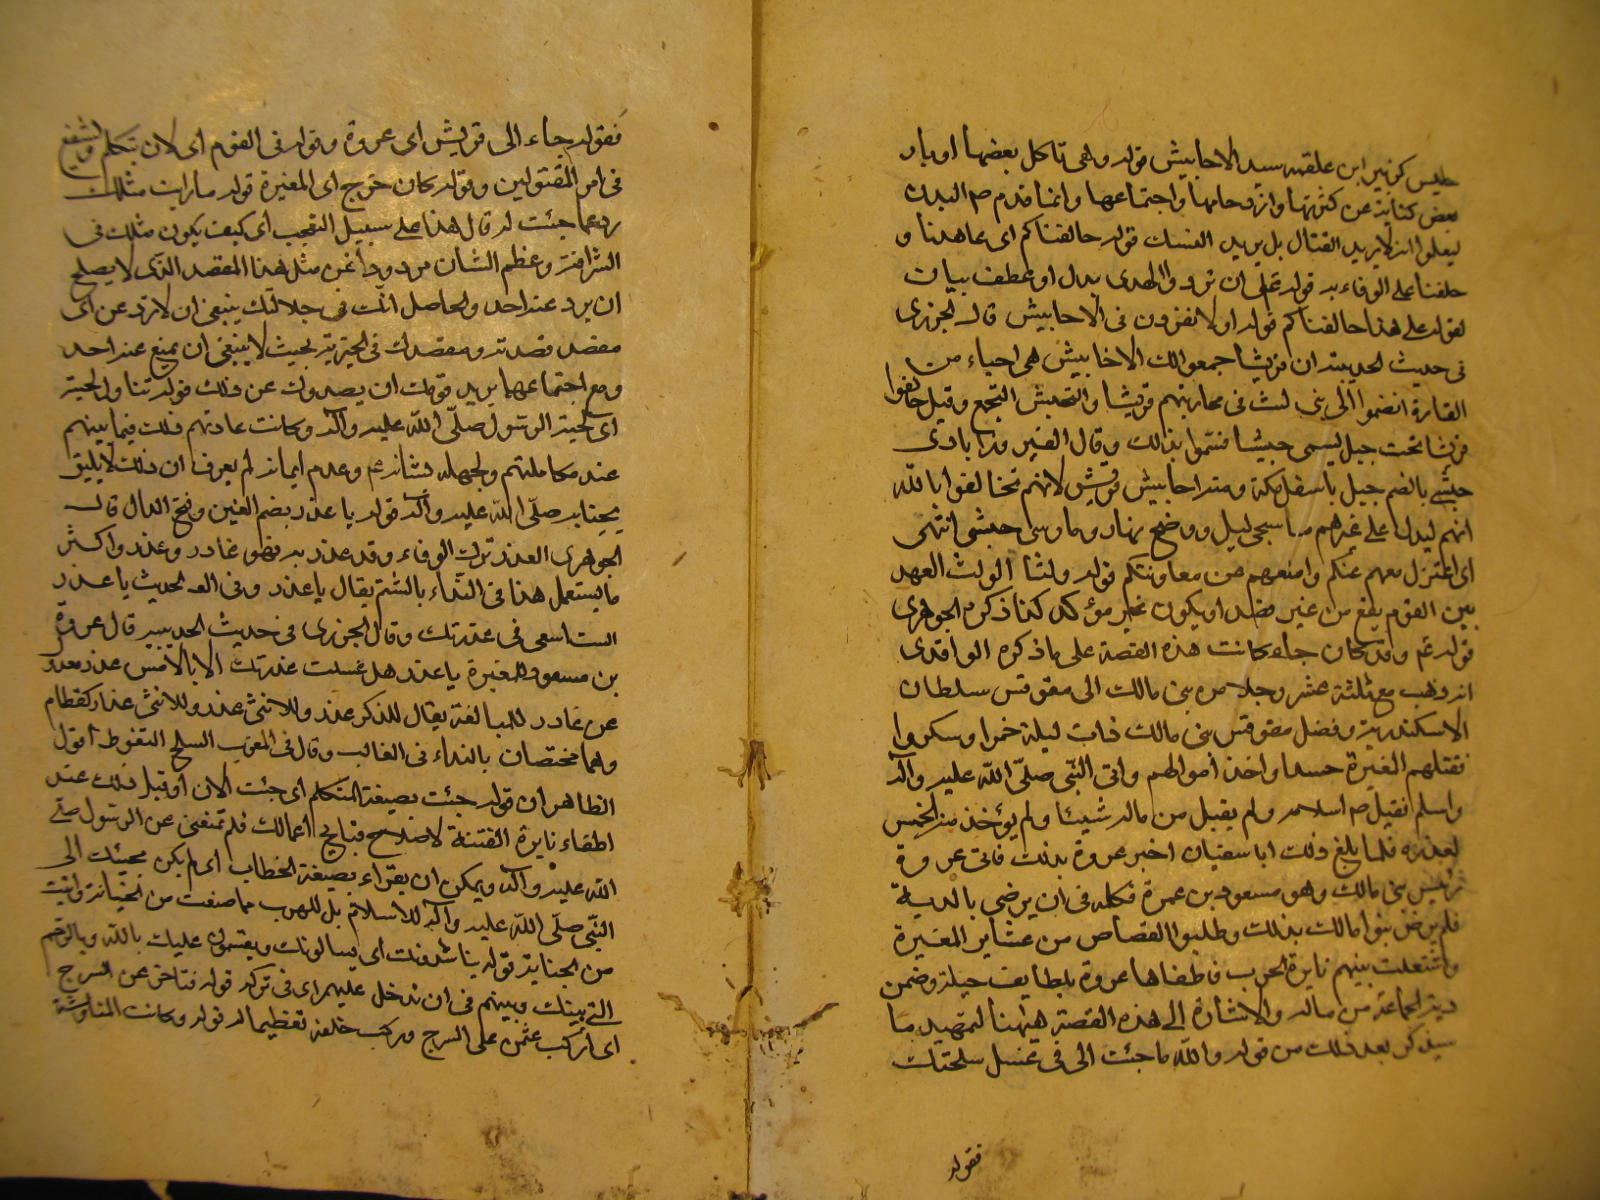 حليس كزبير ابن علقمه سيد الاحابيش قوله وهي تاكل بعضها او بار
بعض كناية عن كثرتها وازدحامها واجتماعها وانما قدم ص البدن
ليعلموا انه لا يريد القتال بل يريد النسك قوله حالفناكم اي عاهدنا و
حلفنا على الوفاء به قوله على ان تردوا الهدى بدل او عطف بيان
لقوله على هذا حالفناكم قوله او لانفردن في الاحابيش قال الجزري
في حديث الحديبية ان قريشا جمعوا لك الاحابيش هي احياء من
القارة انضموا الى بني ليث في محاربتهم قريشا والتحبش التجمع وقيل حالفوا
قريشا تحت جبل يسمى حبشيا فسموا بذلك وقال الفيروزابادي
حبشي بالضم جبل باسفل مكة ومنه احابيش قريش لانهم تحالفوا بالله
انهم ليد على غيرهم ما سجى ليل ووضح نهار وما رسى حبشي انتهى
اي اعتزل معهم عنكم وامنعهم عن معاونتكم قوله ولثا الولث العهد
بين القوم يقع من غير قصد او يكون غير مؤكد كذا ذكره الجوهري
قوله ع وقد كان جاء كانت هذه القصة على ما ذكره الواقدي
انه ذهب مع ثلثة عشر رجلا من بني مالك الى مقوقس سلطان
الاسكندرية وفضل مقوقس بني مالك فلما بات ليلة خمرا وسكروا
فقتلهم المغيرة حسدا واخذ أموالهم واتى النبي صلى الله عليه وآله
واسلم فقبل ص اسلامه ولم يقبل من ماله شيئا ولم يؤخذ منه الخمس
لغدره فلما بلغ ذلك ابا سفيان اخبر عروة بذلك فاتى عروة
رئيس بني مالك وهو مسعود بن عمرة فكلمه في ان يرضى بالدية
فلم يرض بنوا مالك بذلك وطلبوا القصاص من عشاير المغيرة
واشتعلت بينهم نايرة الحرب فاطفاها عروة بلطايف حيله وضمن
دية الجماعة من ماله والاشارة الى هذه القصة هيهنا لتمهيد ما
سيذكر بعد ذلك من قوله والله ما جئت الى في غسل سلحتك
فقوله
فقوله جاء الى قريش اي عروة وقوله في القوم اى لان يتكلم ويشفع
في امر المقتولين وقوله كان خرج اي المغيرة قوله ما رايت مثلك
رد عما جئت له قال هذا على سبيل التعجب اى كيف يكون مثلك في
الشرافة وعظم الشان مردودا عن مثل هذا المقصد الذى لا يصلح
ان يرد عنه احد والحاصل انك في جلالتك ينبغي ان لا ترد عن اى
مقصد قصدته ومقصدك في الخيرية بحيث لا ينبغي ان يمنع عنه احد
ومع اجتماعهما يريد قومك ان يصدوك عن ذلك قوله تناول لحيته
اى لحية الرسول صلى الله عليه وآله وكانت عادتهم ذلك فيما بينهم
عند مكالمتهم ولجهله بشانه ع وعدم ايمانه لم يعرف ان ذلك لا يليق
بجنابه صلى الله عليه وآله قوله يا غدر بضم الغين وفتح الدال قال
الجوهرى الغدر ترك الوفاء وقد غدر به فهو غادر وغدر واكثر
ما يستعمل هذا في النداء بالشتم يقال يا غدر وفي الحديث يا غدر
الست اسعى في غدرتك وقال الجزرى في حديث الحديبية قال عروة
بن مسعود للمغيرة يا غدر هل غسلت غدرتك الا بالامس غدر معدول
عن غادر للمبالغة يقال للذكر غدر وللانثى غدار كقطام
وهما مختصان بالنداء في الغالب وقال في المغرب السلح التغوط أقول
الظاهر ان قوله جئت بصيغة المتكلم اى جئت الآن او قبل ذلك عند
اطفاء نايرة الفتنة لاصلاح قبايح اعمالك فلم تمنعنى عن الرسول صلى
الله عليه وآله ويمكن ان يقراء بصيغة الخطاب اى لم يكن مجيئك الى
النبي صلى الله عليه وآله للاسلام بل للهرب مما صنعت من الخيانة واتيت
من الجناية قوله يناشدونك اى يسالونك ويقسمون عليك بالله وبالرحم
التي بينك وبينهم في ان تدخل عليهم اى في تركه قوله فتاخر عن السرج
اى أركب عثمن على السرج وركب خلفه تعظيما له قوله وكانت المناوشة